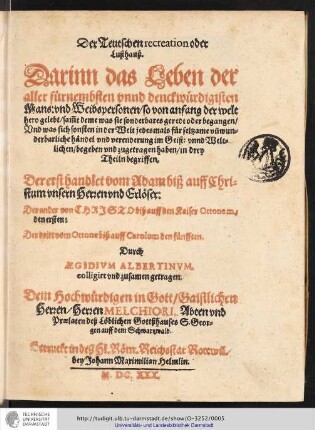 Der Teutschen recreation oder
Lusthauß.
Darinn das Leben der
aller fürnembsten vnnd denckwürdigisten
Mans: vnd Weibspersonen/ so von anfang der welt
hero gelebt/ sampt deme was sie sonderbares geredt oder begangen/
Vnd was sich sonsten in der Welt jedesmals für seltzame vnd wun-
derbarliche händel vnd verenderung im Geist: vnnd Welt-
lichen/ begeben vnd zugetragen haben/ in drey
Theiln begriffen.
Der erst handlet vom Adam biß auff Chri-
stum vnsern Herren vnd Erlöser:
Der ander von CHRISTO biß auff den Kaiser Ottonem,
den ersten:
Der dritt vom Ottone biß auff Carolum den fünfften.
Durch
ÆGIDIUM ALBERTINVM,
colligirt vnd zusamen getragen.
Dem Hochwürdigen in Gott/ Gaistlichen
Herren/ Herren MELCHIORI, Abten vnd
Prælaten deß Löblichen Gottshauses S. Geor-
gen auff dem Schwartzwald.
Getruckt in deß Hl. Röm. Reichsstat Rottweil.
bey Johann Maximilian Helmlin.
M. DC. XXX.
TECHNISCHE
UNIVERSITÄT
DARMSTADT
http://tudigit.ulb.tu-darmstadt.de/show/O-3252/0005
Universitäts- und Landesbibliothek Darmstadt